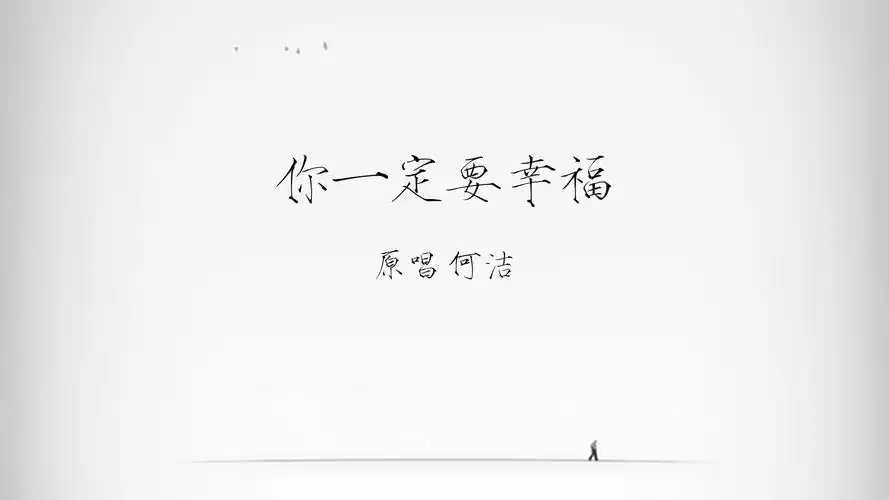 你一定要幸福
原唱 何洁